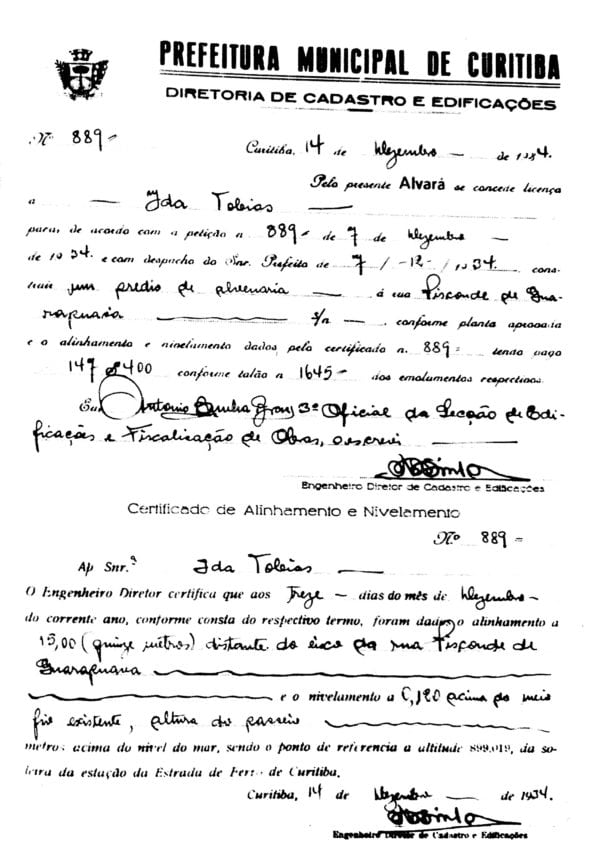 PREFEITURA MUNICIPAL DE CURITIBA
DIRETORIA DE CADASTRO E EDIFICAÇÕES
Nº 889=
Curitiba, 14 de Dezembro — de 1934.
Pelo presente Alvará se concede licença
a — Ida —
para, de acordo com a petição n 889- de 7 de Dezembro —
de 1934. e com despacho do Snr. Prefeito de 7 / -12- / 1934. cons-
truir um predio de alvenaria — á rua Visconde de Gua-
rapuava — s/n —, conforme planta aprovada
e o alinhamento e nivelamento dados, pelo certificado n. 889= tendo pago
147$400 conforme talão n 1645- dos emolumentos respectivos.
Eu, Antonio 3º Oficial da Secção de Edi-
ficações e Fiscalização de Obras, o escrevi —
Engenheiro Diretor de Cadastro e Edificações
Certificado de Alinhamento e Nivelamento
Nº 889-
Ao Snr.ª Ida —
O Engenheiro Diretor certifica que aos Treze — dias do mês de Dezembro-
do corrente ano, conforme consta do respectivo termo, foram dados o alinhamento a
15,00 (quinze metros) distante do eixo da rua Visconde de
Guarapuava
e o nivelamento a 0,120 acima do meio
fio existente, altura do passeio
metros acima do nivel do mar, sendo o ponto de referencia a altitude 899,019, da so-
leira da estação da Estrada de Ferro de Curitiba.
Curitiba, 14 de Dezembro — de 1934.
Engenheiro Diretor de Cadastro e Edificações